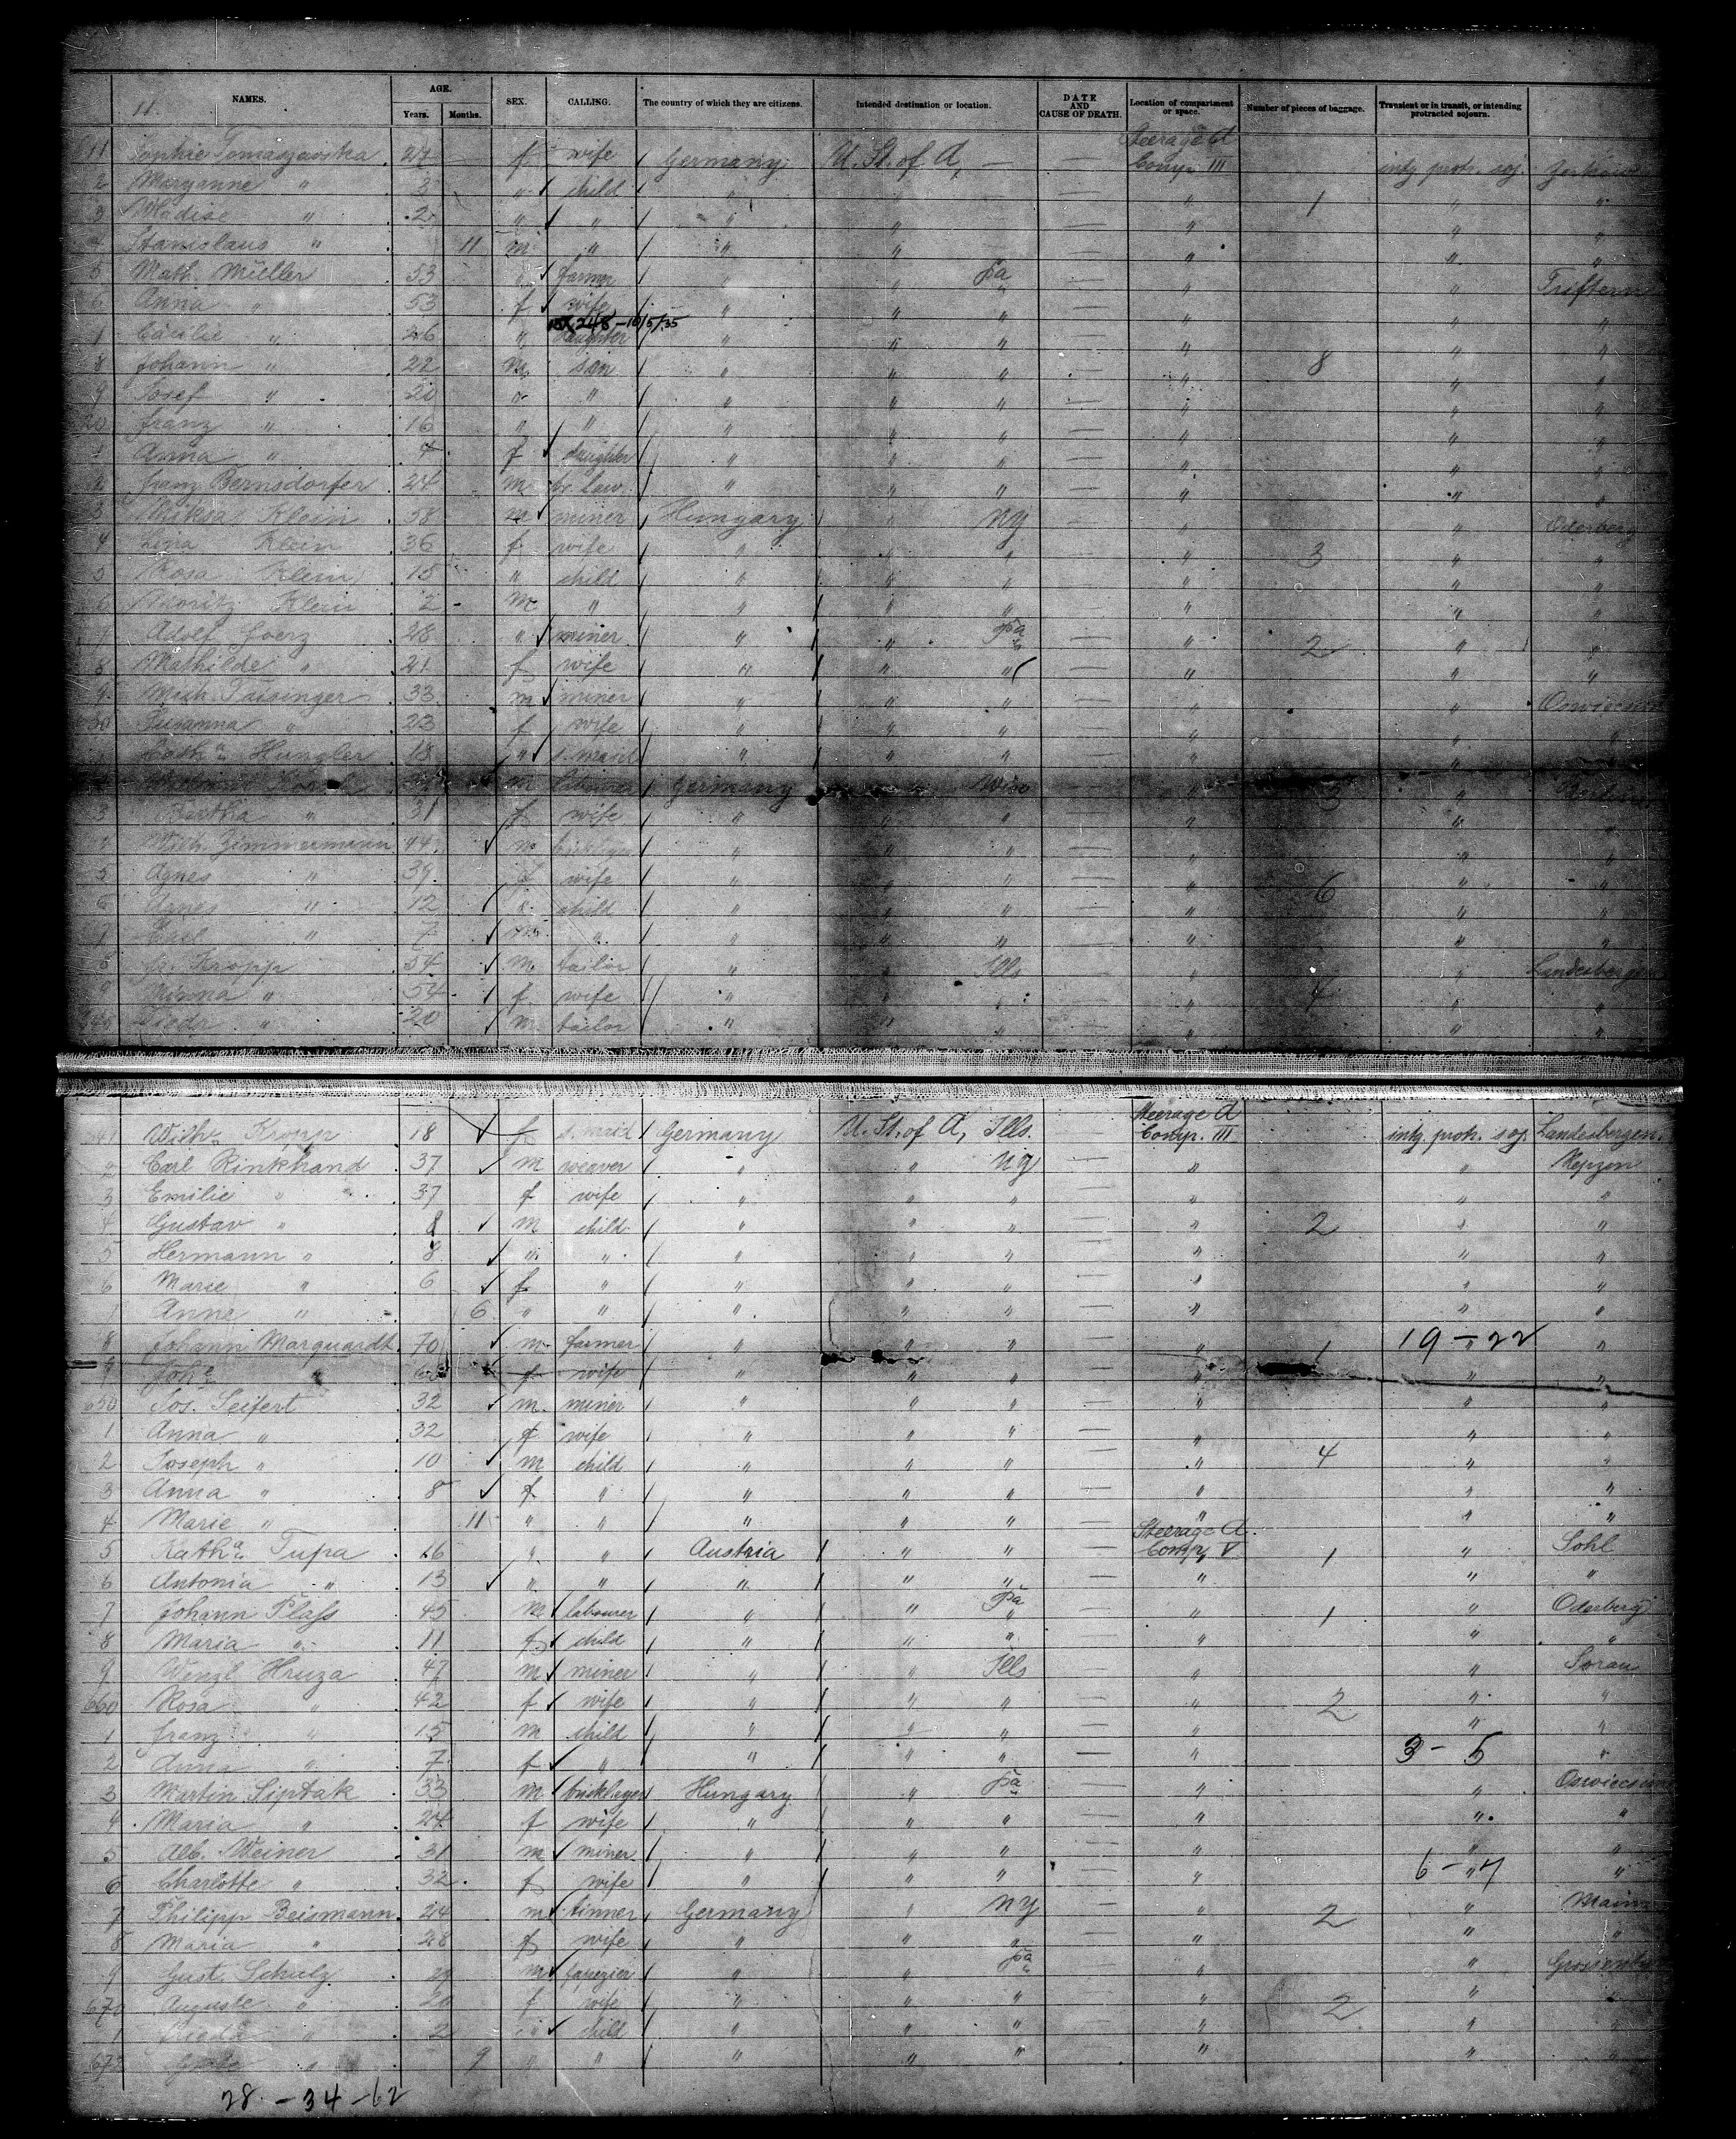 11.
NAMES. AGE. Years. Months. SEX. CALLING. The country of which they are citizens. Intended destination or location. DATE AND CAUSE OF DEATH. Location of compartment or space. Number of pieces of baggage. Transient or in transit, or intending protracted sojourn.
11 Sophie Tomaszewska 27 f wife Germany U. St. of A, — Steerage A Comp. III intg. protr. soj.
2 Maryanne " 3 " child " " " 1 " "
3 Wladise " 2 " " " " " " "
4 Stanislaus " 11 m " " " " " "
5 Math. Müller 53 " farmer " " Pa " " Triftern
6 Anna " 53 f wife " " " " " "
248 - 10/5/35
7 Cäcilie " 26 " daughter " " " " " "
8 Johann " 22 m son " " " " 8 " "
9 Josef " 20 " " " " " " " "
20 Franz " 16 " " " " " " " "
1 Anna " 4 f daughter " " " " " "
2 Franz Bernsdorfer 24 m br. law " " " " " "
3 Miksa Klein 58 m miner Hungary " NY " " Oderberg
4 Klein 36 f wife " " " " 3 " "
5 Rosa Klein 15 " child " " " " " "
6 Moritz Klein 2 m " " " " " " "
7 Adolf Goerz 28 " miner " " Pa " 2 " "
8 Mathilde " 21 f wife " " " " " "
9 Mich. Taisinger 33 m miner " " " " "
630 Susanna " 23 f wife " " " " " "
Cath. Hungler 18 " s. maid " " " " " "
m labourer Germany " Wisc " 3 "
3 Bertha " 31 f wife " " " " " "
4 Mich. Zimmermann 44 m " " " " " "
5 Agnes " 39 f wife " " " " 6 " "
6 Agnes " 12 " child " " " " " "
7 Carl " 7 m " " " " " " "
8 Fr. Kropp 54 m tailor " " Ills " " Landesbergen
9 Minna " 54 f wife " " " " 4 " "
640 " 20 m tailor " " " " " "
641 Wilh. Kropp 18 f s. maid Germany U. St. of A, Ills. Steerage A Comp. III intg. protr. soj. Landesbergen
2 Carl Rinkhand 37 m weaver " " NY " "
3 Emilie " 37 f wife " " " " " "
4 Gustav " 8 m child " " " " 2 " "
5 Hermann " 8 " " " " " " " "
6 Marie " 6 f " " " " " " "
7 Anne " 6 " " " " " " " "
8 Johann Marquardt 70 m farmer " " " " 1 " 19-22 "
9 Joh. " f wife " " " " " "
650 Jos. Seifert 32 m miner " " " " " "
1 Anna " 32 f wife " " " " " "
2 Joseph " 10 m child " " " " 4 " "
3 Anna " 8 f " " " " " " "
4 Marie " 11 " " " " " " " "
5 Kath. Tupa 16 " " Austria " " Steerage A Comp. V 1 " Sohl
6 Antonia " 13 " " " " " " " "
7 Johann Plass 45 m labourer " " Pa " 1 " Oderberg
8 Maria " 11 f child " " " " " "
9 Wenzl Hruza 47 m miner " " Ills " " Sorau
660 Rosa " 42 f wife " " " " 2 " "
1 Franz " 15 m child " " " " " "
2 Anna " 7 f " " " " " 3-5 "
3 Martin Siptak 33 m Hungary " Pa " "
4 Maria " 24 f wife " " " " " "
5 Alb. Weiner 31 m miner " " " " " "
6 Charlotte " 32 f wife " " " " 6-7 " "
7 Philipp Beismann 24 m tinner Germany " NY " 2 " Mainz
8 Maria " 28 f wife " " " " " "
9 Gust. Schulz 29 m " " Pa " "
670 Auguste " 20 f wife " " " " 2 " "
1 " 2 " child " " " " " "
672 " 9 " " " " " " " "
28.-34-62